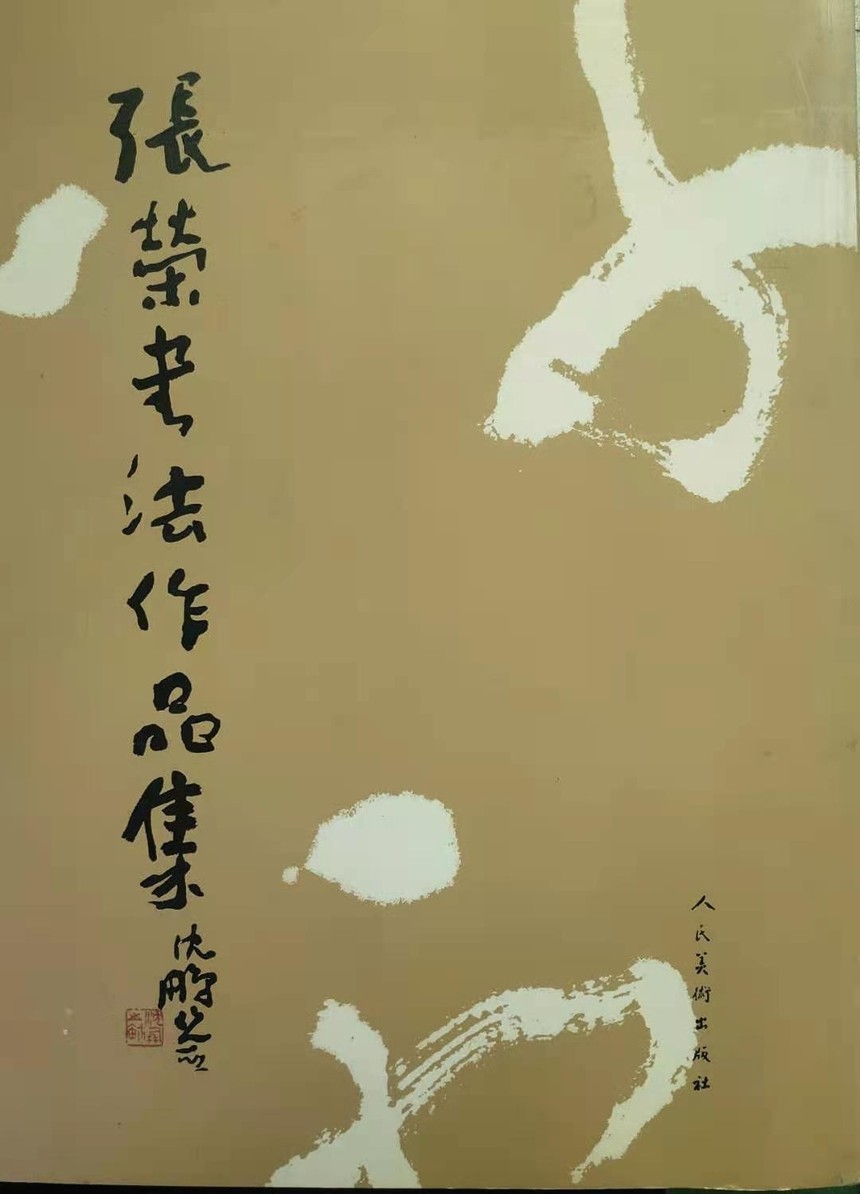 張榮书法作品集
沈鵬
人民美術出版社